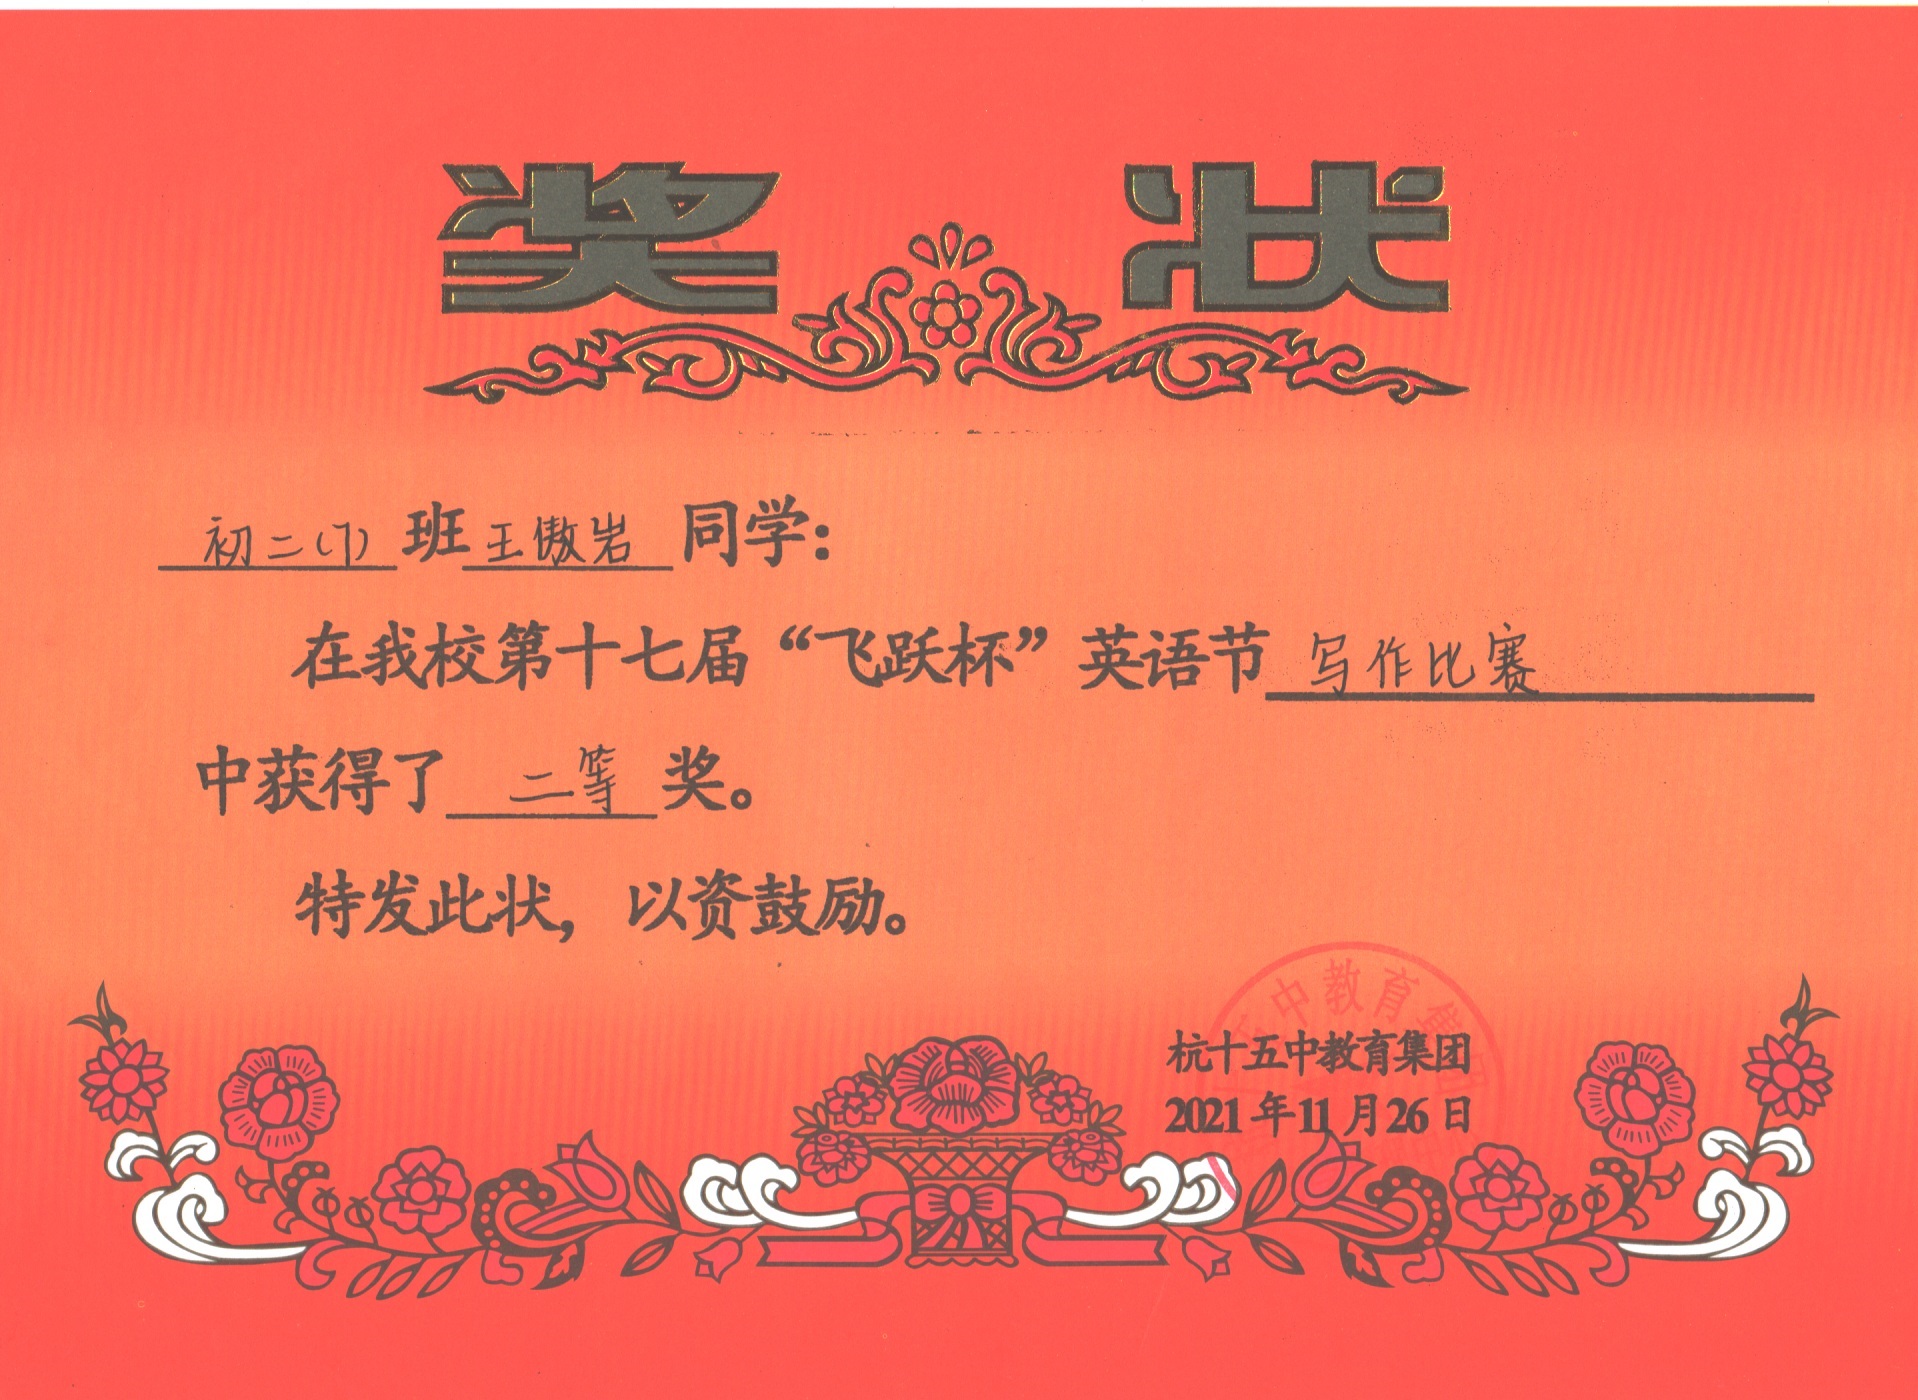 奖状
初二(7)班王傲岩同学:
在我校第十七届“飞跃杯”英语节写作比赛
中获得了二等奖。
特发此状,以资鼓励。
中教育集
杭十五中教育集团
2021年11月26日